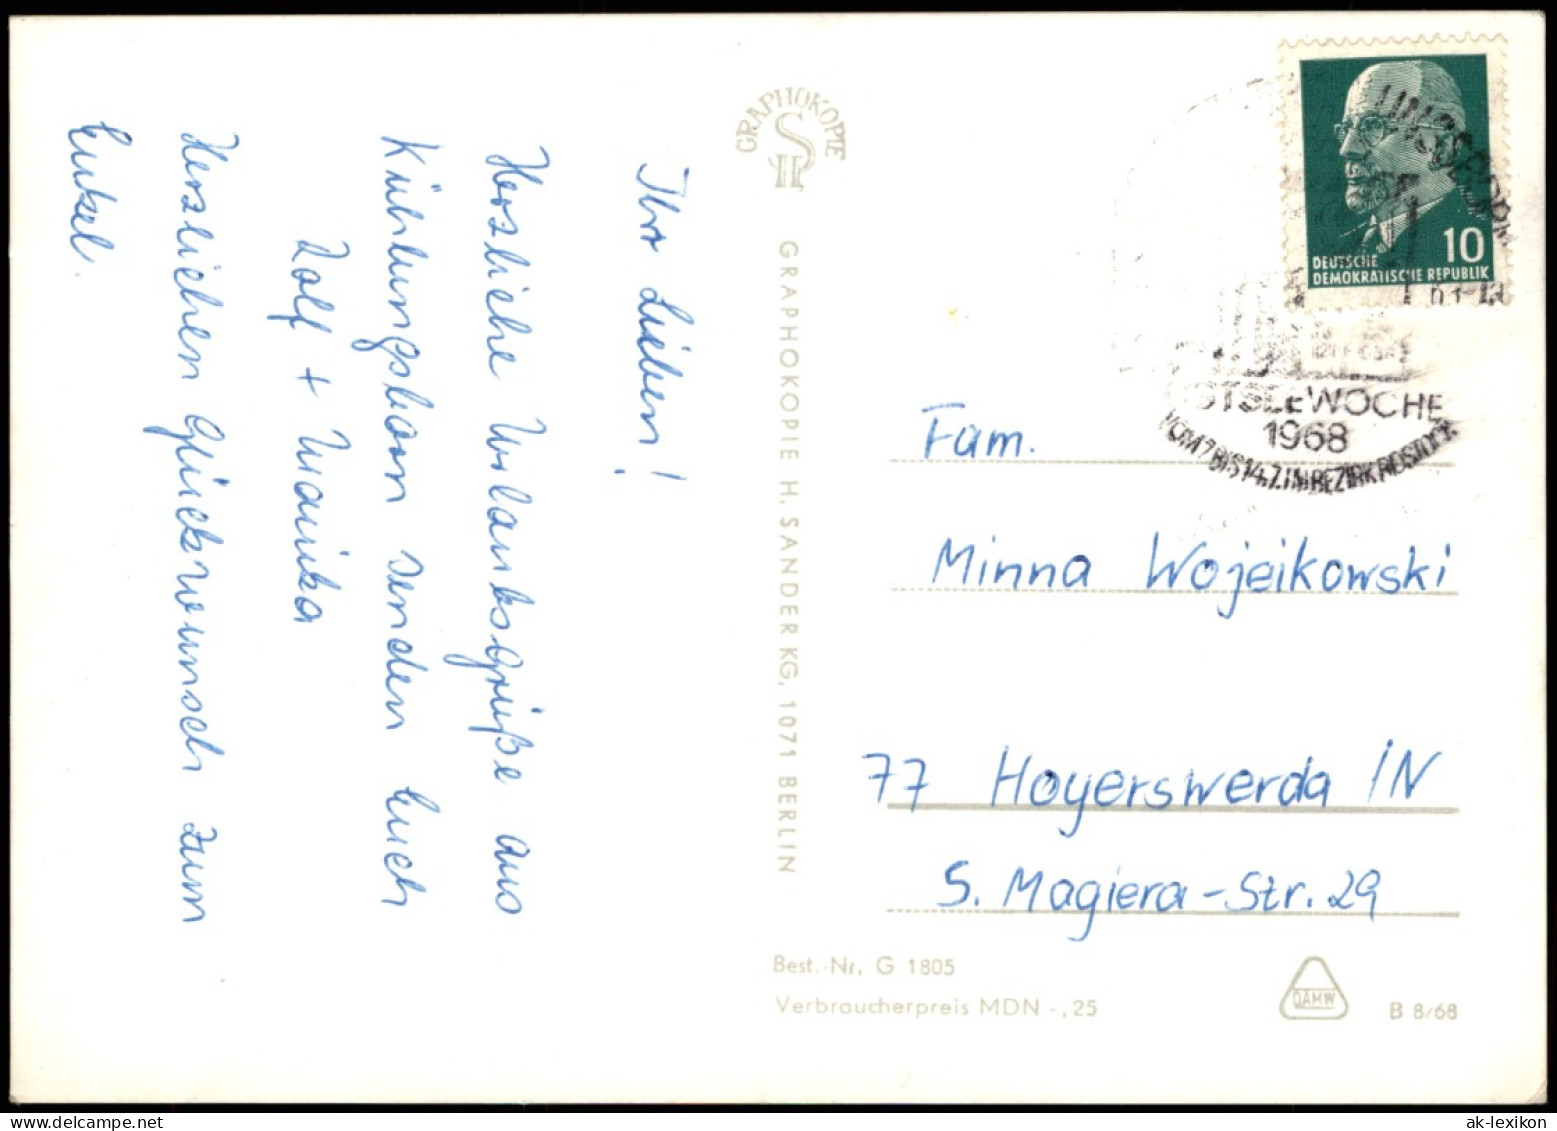 Ihr Lieben!
Herzliche Urlaubsgrüße aus
Kühlungsborn senden Euch
Rolf + Marika
Herzlichen Glückwunsch zum
Enkel.
GRAPHOKOPIE
H S
GRAPHOKOPIE H. SANDER KG, 1071 BERLIN
10
DEUTSCHE
DEMOKRATISCHE REPUBLIK
OSTSEEWOCHE
1968
VOM 7. BIS 14.7. IM BEZIRK ROSTOCK
Fam.
Minna Wojeikowski
77 Hoyerswerda /N
S. Magiera-Str. 29
Best.-Nr. G 1805
Verbraucherpreis MDN -,25
DAMW
B 8/68
ak-lexikon